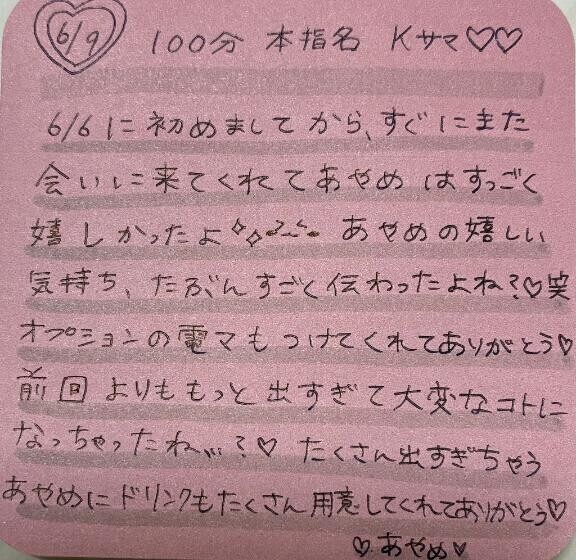 6/9 100分 本指名 Kサマ♡♡
6/6に初めましてから、すぐにまた
会いに来てくれてあやめはすっごく
嬉しかったよ あやめの嬉しい
気持ち、たぶんすごく伝わったよね?♡笑
オプションの電マもつけてくれてありがとう♡
前回よりももっと出すぎて大変なコトに
なっちゃったね...?♡ たくさん出すぎちゃう
あやめにドリンクもたくさん用意してくれてありがとう♡
♡あやめ♡